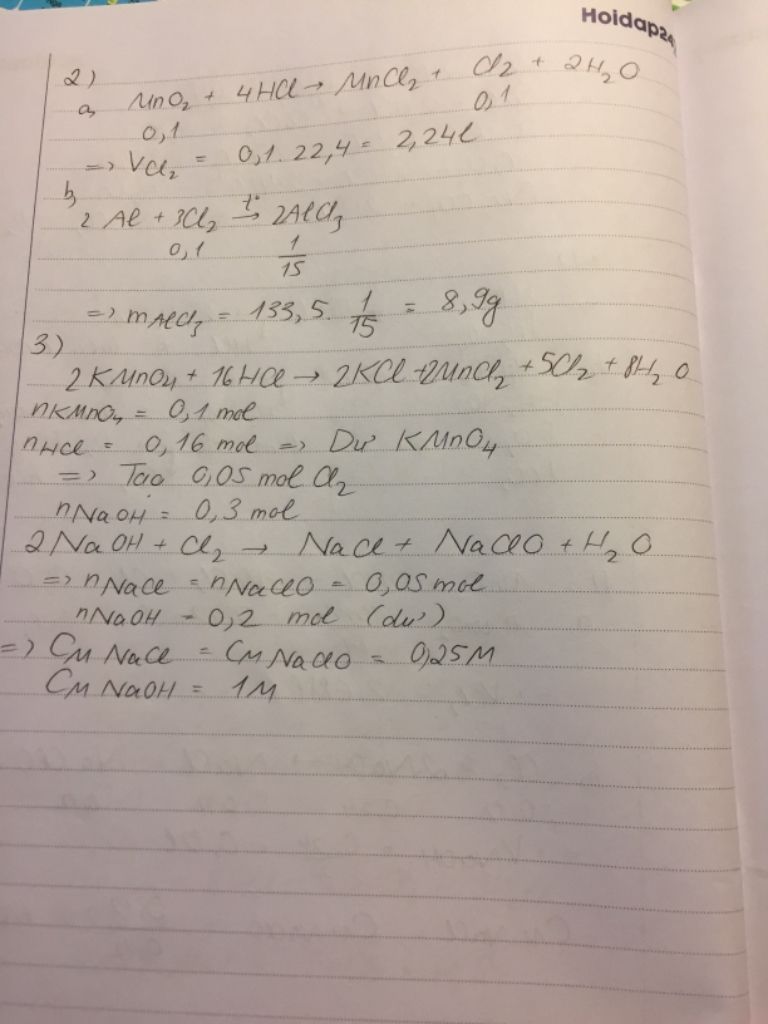 Hoidap24
2)
a, MnO₂ + 4HCl → MnCl₂ + Cl₂ + 2H₂O
0,1 0,1
=> VCl₂ = 0,1. 22,4 = 2,24l
b,
2 Al + 3Cl₂ t°→ 2AlCl₃
0,1 1/15
=> mAlCl₃ = 133,5. 1/15 = 8,9g
3.)
2KMnO₄ + 16HCl → 2KCl +2MnCl₂ +5Cl₂ + 8H₂O
nKMnO₄ = 0,1 mol
nHCl = 0,16 mol => Dư KMnO₄
=> Tạo 0,05 mol Cl₂
nNaOH = 0,3 mol
2NaOH + Cl₂ → NaCl + NaClO + H₂O
=> nNaCl = nNaClO = 0,05 mol
nNaOH = 0,2 mol (dư)
=> CM NaCl = CM NaClO = 0,25M
CM NaOH = 1M